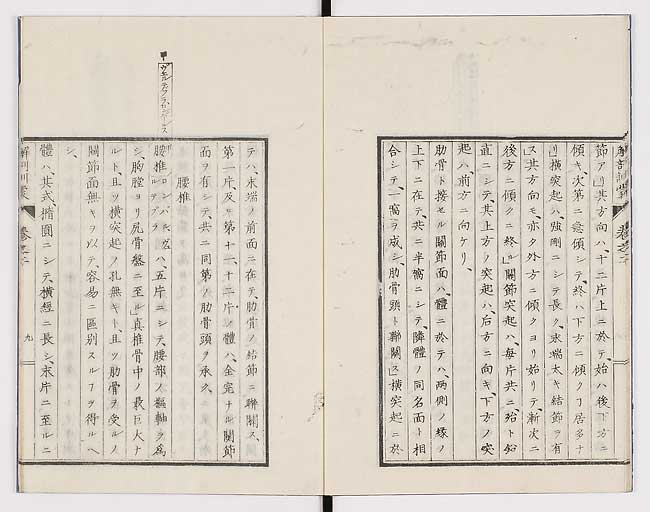 節アリ其方向ハ、十二片上ニ於テ、始ハ後下方ニ
傾キ、次第ニ急傾シテ、終ハ下方ニ傾ク丁居多ナ
リ」横突起ハ、強剛ニシテ長ク、末端太キ結節ヲ有
ス其方向モ、亦タ外方ニ傾クヨリ始リテ、漸次ニ
後方ニ傾クニ終ル」關節突起ハ、每片共ニ殆ト鉛
直ニシテ、其上方ノ突起ハ、后方ニ向キ、下方ノ突
起ハ、前方ニ向ケリ、
肋骨ト接セル關節面ハ、體ニ於テハ、兩側ノ縁ノ
上下ニ在テ、共ニ半窩ニシテ、隣體ノ同名面ト相
合シテ、一窩ヲ成シ、肋骨頭ト聯關ス」横突起ニ於
解剖訓蒙
卷之二
テハ、末端ノ前面ニ在テ、肋骨ノ結節ニ聯關ス、
第一片及ヒ第十一十二片ノ體ハ、全完ナル關節
面ヲ有シテ、共ニ同第ノ肋骨頭ヲ承ク、
腰椎
腰椎ハ、五片ニシテ、腰部ノ樞軸ヲ爲
シ、胸膛ヨリ尻骨盤ニ至ル」眞椎骨中ノ最巨大ナ
ルト、且ツ横突起ノ孔無キト、且ツ肋骨ヲ受ルノ
關節面無キヲ以テ、容易ニ區別スル丁ヲ得ルヘ
シ、
體ハ、其式橢圓ニシテ、横經ニ長シ、末片ニ至ルニ
解剖訓蒙
卷之二
九